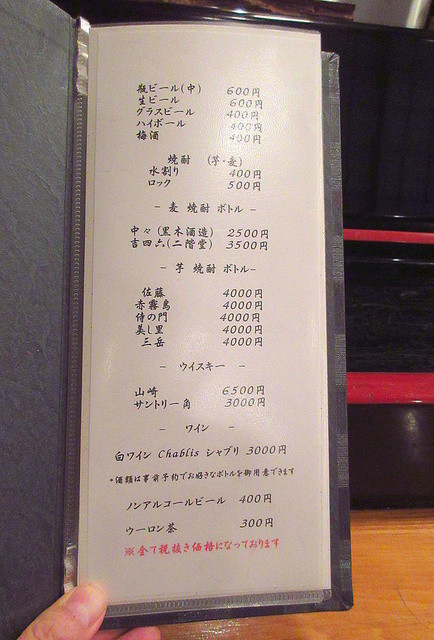 瓶ビール(中) 600円
生ビール 600円
グラスビール 400円
ハイボール 400円
梅酒 400円
焼酎 (芋・麦)
水割り 400円
ロック 500円
- 麦 焼酎 ボトル -
中々(黒木酒造) 2500円
吉四六(二階堂) 3500円
- 芋 焼酎 ボトル-
佐藤 4000円
赤霧島 4000円
侍の門 4000円
美し里 4000円
三岳 4000円
- ウイスキー -
山崎 6500円
サントリー角 3000円
- ワイン -
白ワイン Chablis シャブリ 3000円
*酒類は事前予約でお好きなボトルを御用意できます
ノンアルコールビール 400円
ウーロン茶 300円
※全て税抜き価格になっております